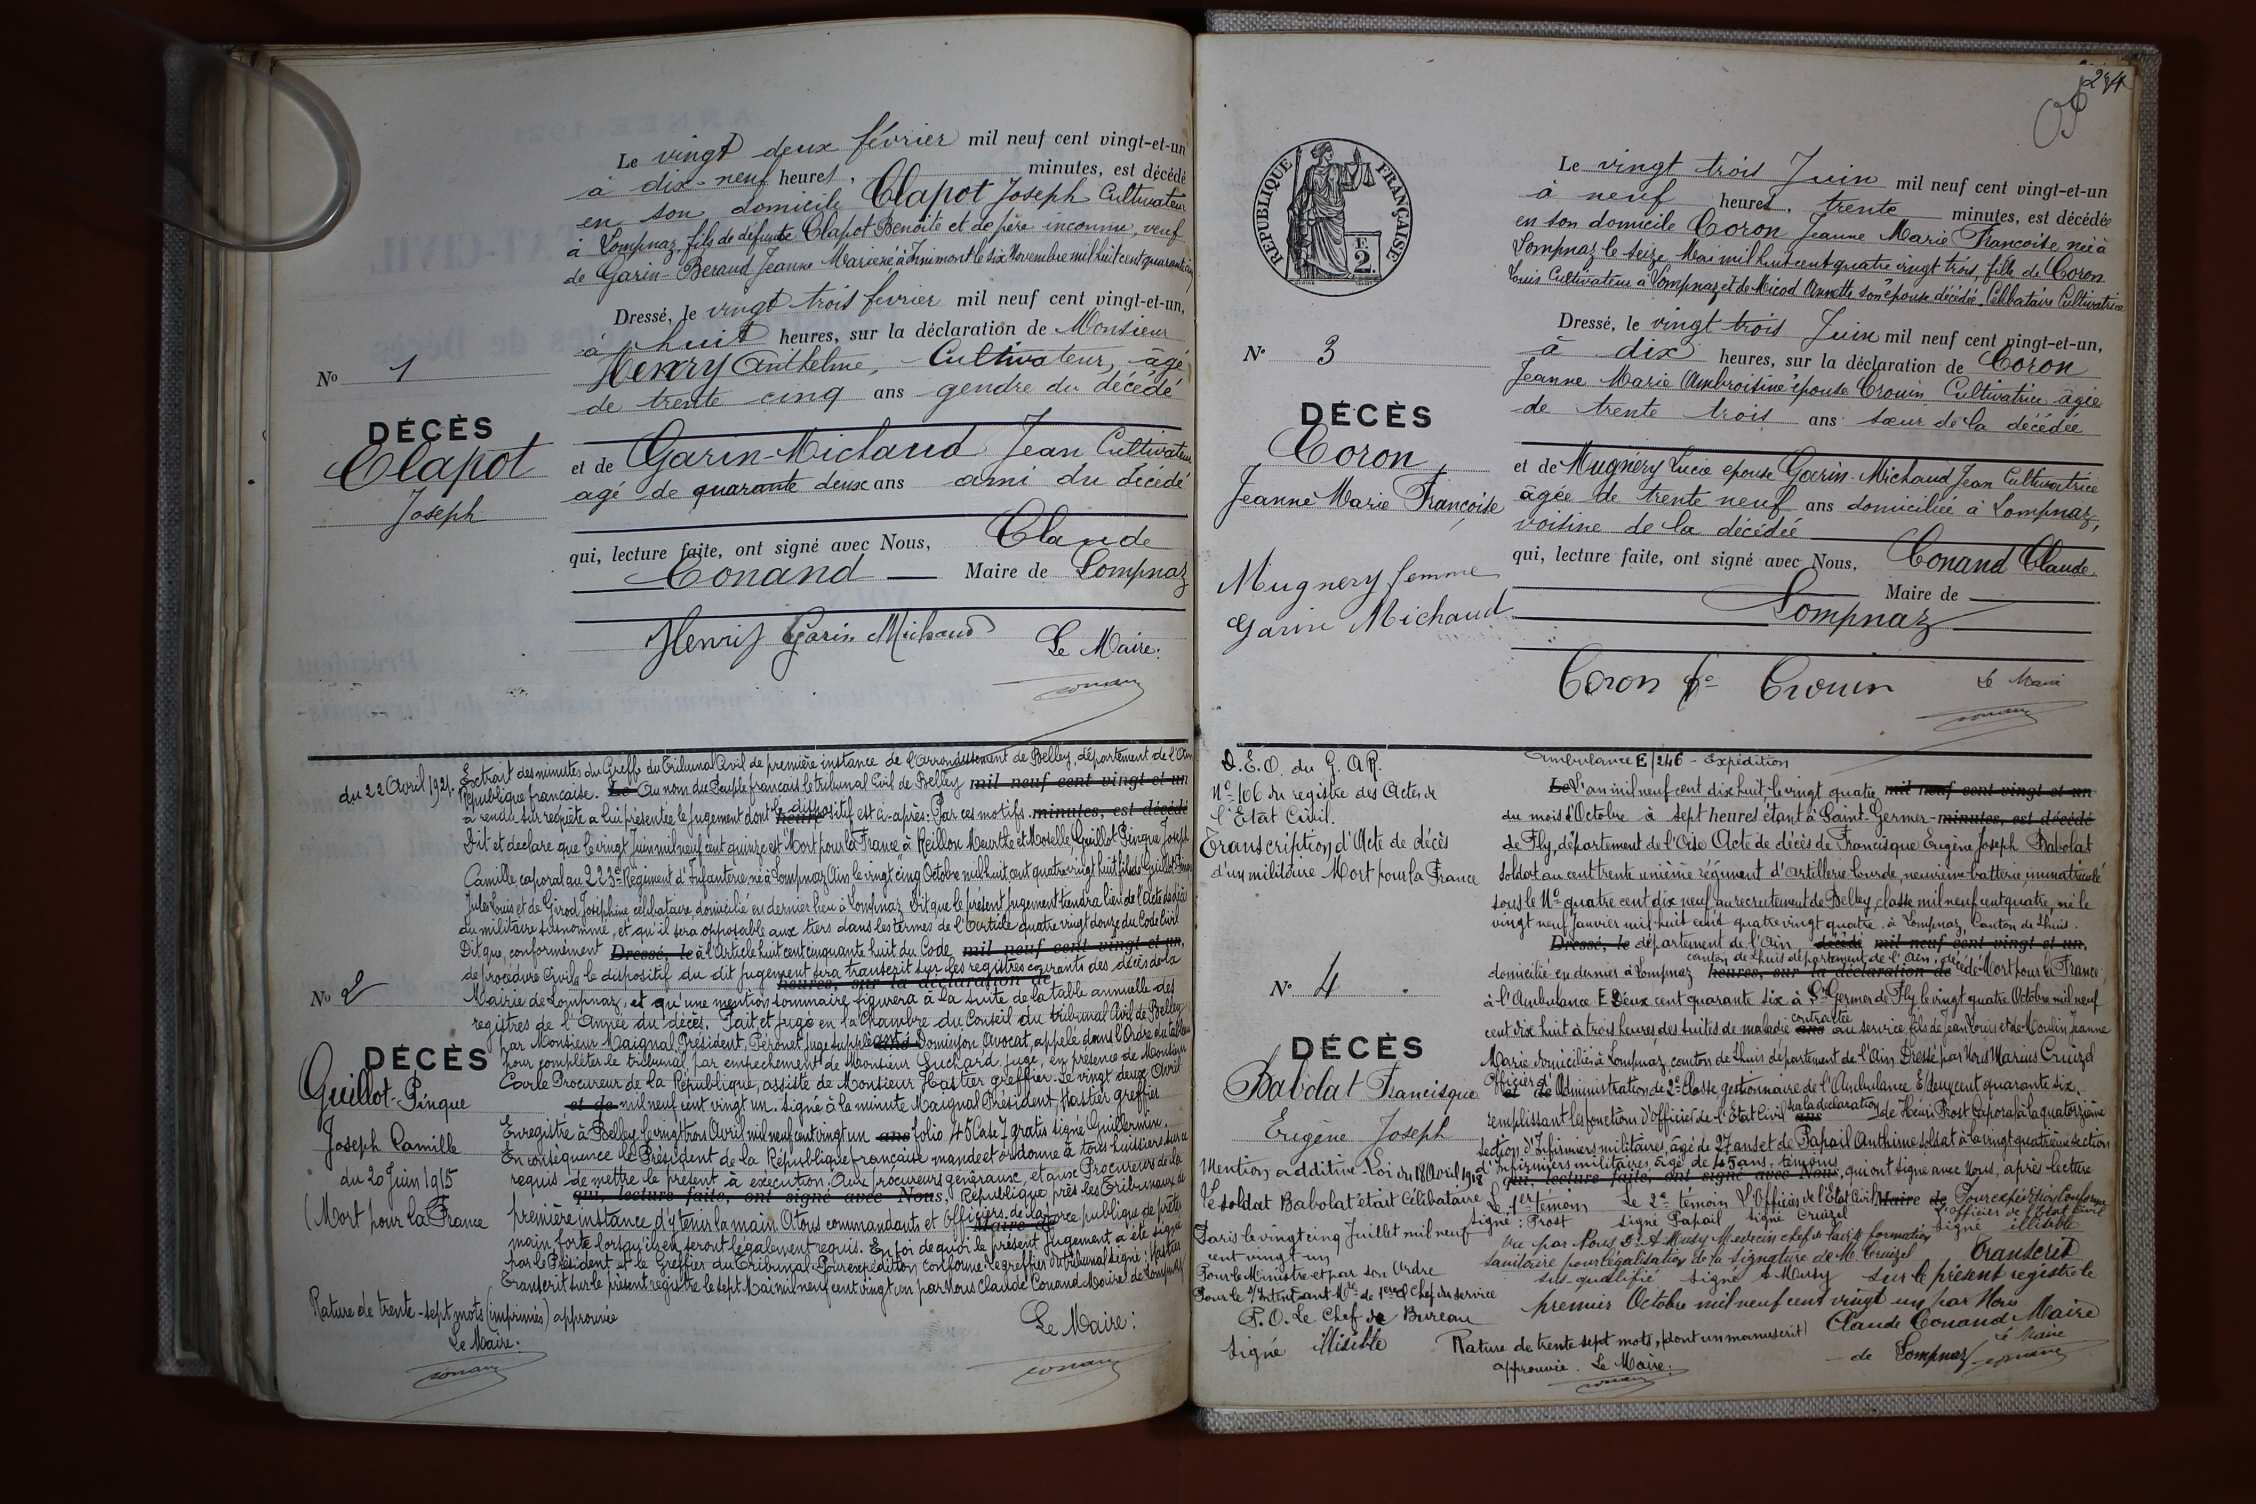 Le vingt deux février mil neuf cent vingt-et-un
à dix-neuf heures, minutes, est décédé
en son domicile Clapot Joseph Cultivateur
à Lompnaz fils de défunte Clapot Benoîte et de père inconnu, veuf
de Garin-Beraud Jeanne Marie né à Innimont le six Novembre mil huit cent quarante cinq
Dressé, le vingt trois février mil neuf cent vingt-et-un,
à huit heures, sur la déclaration de Monsieur
Henry Anthelme, Cultivateur, âgé
de trente cinq ans gendre du décédé
No 1
DÉCÈS
Clapot
Joseph
et de Garin-Michaud Jean Cultivateur
agé de quarante deux ans ami du décédé
qui, lecture faite, ont signé avec Nous, Claude
Conand Maire de Lompnaz
Henry Garin Michaud Le Maire:
Conand
du 22 Avril 1921.
Extrait des minutes du Greffe du Tribunal Civil de première instance de l'arrondissement de Belley, département de l'Ain
République française. Le Au nom du Peuple français le tribunal Civil de Belley mil neuf cent vingt et un
a rendu sur requête a lui présentée le Jugement dont le dispositif heure est ci-après: Par ces motifs. minutes, est décédé
Dit et declare que le vingt Juin mil neuf cent quinze est "Mort pour la France" à Reillon Meurthe et Moselle Guillot Pingue Joseph
Camille caporal au 223e Régiment d'Infanterie né à Lompnaz Ain le vingt cinq Octobre mil huit cent quatre vingt huit fils de Guillot Pingue
Jules Louis et de Girod Joséphine célibataire, domicilié en dernier lieu à Lompnaz Dit que le présent jugement tiendra lieu de l'Acte de décès
du militaire susnommé, et qu'il sera opposable aux tiers dans les termes de l'Article quatre vingt douze du Code Civil
Dit que, conformément Dressé, le à l'Article huit cent cinquante huit du Code mil neuf cent vingt et un,
de procédure Civile le dispositif du dit jugement sera transcrit sur les registres courants des décès de la
heures, sur la déclaration de
Mairie de Lompnaz, et qu'une mention sommaire figurera à la suite de la table annuelle des
registres de l'Année du décès. Fait et jugé en la Chambre du Conseil du tribunal Civil de Belley
par Monsieur Maignal Président, Péronet juge suppléant ans Dominjon Avocat, appelé dans l'Ordre du tableau
pour compléter le tribunal par empechement de Monsieur Suchard juge, en présence de Monsieur
le Procureur de la République, assisté de Monsieur Hastier greffier. Le vingt deux Avril
et de mil neuf cent vingt un. signé à la minute Maignal Président, Hastier greffier
Enregistré à Belley le vingt trois Avril mil neuf cent vingt un ans folio 45 Case 7 gratis signé Guillermin.
En conséquence le Président de la République française mande et ordonne à tous huissiers sur ce
requis de mettre le présent à exécution. Aux procureurs généraux, et aux Procureurs de la
qui, lecture faite, ont signé avec Nous. République près les Tribunaux de
première instance d'y tenir la main. A tous commandants et Officiers de la Maire de force publique de prêter
main forte lorsqu'ils en seront légalement requis. En foi de quoi le présent Jugement a été signé
par le Président et le Greffier du Tribunal. Pour expédition conforme: Le greffier du tribunal signé: Hastier
Transcrit sur le présent registre le sept Mai mil neuf cent vingt un par Nous Claude Conand Maire de Lompnaz
No 2
DÉCÈS
Guillot-Pingue
Joseph Camille
du 20 Juin 1915
(Mort pour la France
Rature de trente-sept mots (imprimés) approuvée
Le Maire:
Conand
Le Maire:
Conand
274
RÉPUBLIQUE FRANÇAISE
F.
2.
Le vingt trois Juin mil neuf cent vingt-et-un
à neuf heures, trente minutes, est décédée
en son domicile Coron Jeanne Marie Françoise, née à
Lompnaz le seize Mai mil huit cent quatre vingt trois, fille de Coron
Louis Cultivateur à Lompnaz et de Micod Annette son épouse décédée. Célibataire Cultivatrice
Dressé, le vingt trois Juin mil neuf cent vingt-et-un,
à dix heures, sur la déclaration de Coron
Jeanne Marie Ambroisine épouse Crouin Cultivatrice agée
de trente trois ans sœur de la décédée
No 3
DÉCÈS
Coron
Jeanne Marie Françoise
et de Mugnery Lucie epouse Garin-Michaud Jean Cultivatrice
âgée de trente neuf ans domiciliée à Lompnaz,
voisine de la décédée
qui, lecture faite, ont signé avec Nous, Conand Claude.
Maire de
Lompnaz
Mugnery femme
Garin Michaud
Coron fe Crouin Le Maire
Conand
D.E.O. du G.A.R.
No 106 du registre des Actes de
l'Etat Civil.
Transcription d'Acte de décès
d'un militaire Mort pour la France
Ambulance E/246 - Expédition
Le L'an mil neuf cent dix huit, le vingt quatre mil neuf cent vingt et un
du mois d'Octobre à sept heures étant à Saint-Germer- minutes, est décédé
de Fly, département de l'Oise Acte de décès de Francisque Eugène Joseph Babolat
soldat au cent trente unième régiment d'artillerie lourde, neuvième batterie, immatriculé
sous le No quatre cent dix neuf au recrutement de Belley, classe mil neuf cent quatre, né le
vingt neuf Janvier mil huit cent quatre vingt quatre à Lompnaz, Canton de Lhuis.
Dressé, le département de l'Ain, décédé mil neuf cent vingt et un,
canton de Lhuis département de l'Ain,
domicilié en dernier à Lompnaz heures, sur la déclaration de décédé Mort pour la France
à l'Ambulance E Deux cent quarante six à St Germer de Fly le vingt quatre Octobre mil neuf
cent dix huit à trois heures des suites de maladie contractée ans au service, fils de Jean Louis et de Moulin Jeanne
Marie domiciliés à Lompnaz, canton de Lhuis département de l'Ain Dressé par Nous Marius Cruizel
Officier d' et de Administration de 2e Classe gestionnaire de l'Ambulance E/deux cent quarante six,
remplissant les fonctions d'officier de l'Etat Civil sur la déclaration ans de Henri Prost Caporal à la quatorzième
section d'Infirmiers militaires, âgé de 27 ans et de Papail Anthime soldat à la vingt quatrième section
d'Infirmiers militaires, âgé de 45 ans, témoins
qui, lecture faite, ont signé avec Nous, qui ont signé avec Nous, après lecture
Le 1er témoin Le 2e témoin L'Officier de l'Etat Civil Maire de Pour expédition Conforme
signé: Prost signé Papail signé Cruizel L'Officier de l'Etat Civil
signé illisible
Vu par Nous Dr A Musy Medecin chef de la dite formation
sanitaire pour légalisation de la signature de M. Cruizel Transcrit
sus-qualifié signé A Musy sur le présent registre le
premier Octobre mil neuf cent vingt un par Nous
Claude Conand Maire
de Lompnaz Le Maire
Conand
No 4
DÉCÈS
Babolat Francisque
Eugène Joseph
Mention additive Loi du 18 Avril 1918
Le soldat Babolat était Célibataire
Paris le vingt cinq Juillet mil neuf
cent vingt-un
Pour le Ministre et par son Ordre
Pour le S/Intendant Mre de 1ere Cl Chef du service
P.O. Le Chef de Bureau
Signé illisible
Rature de trente sept mots, (dont un manuscrit)
approuvée. Le Maire:
Conand